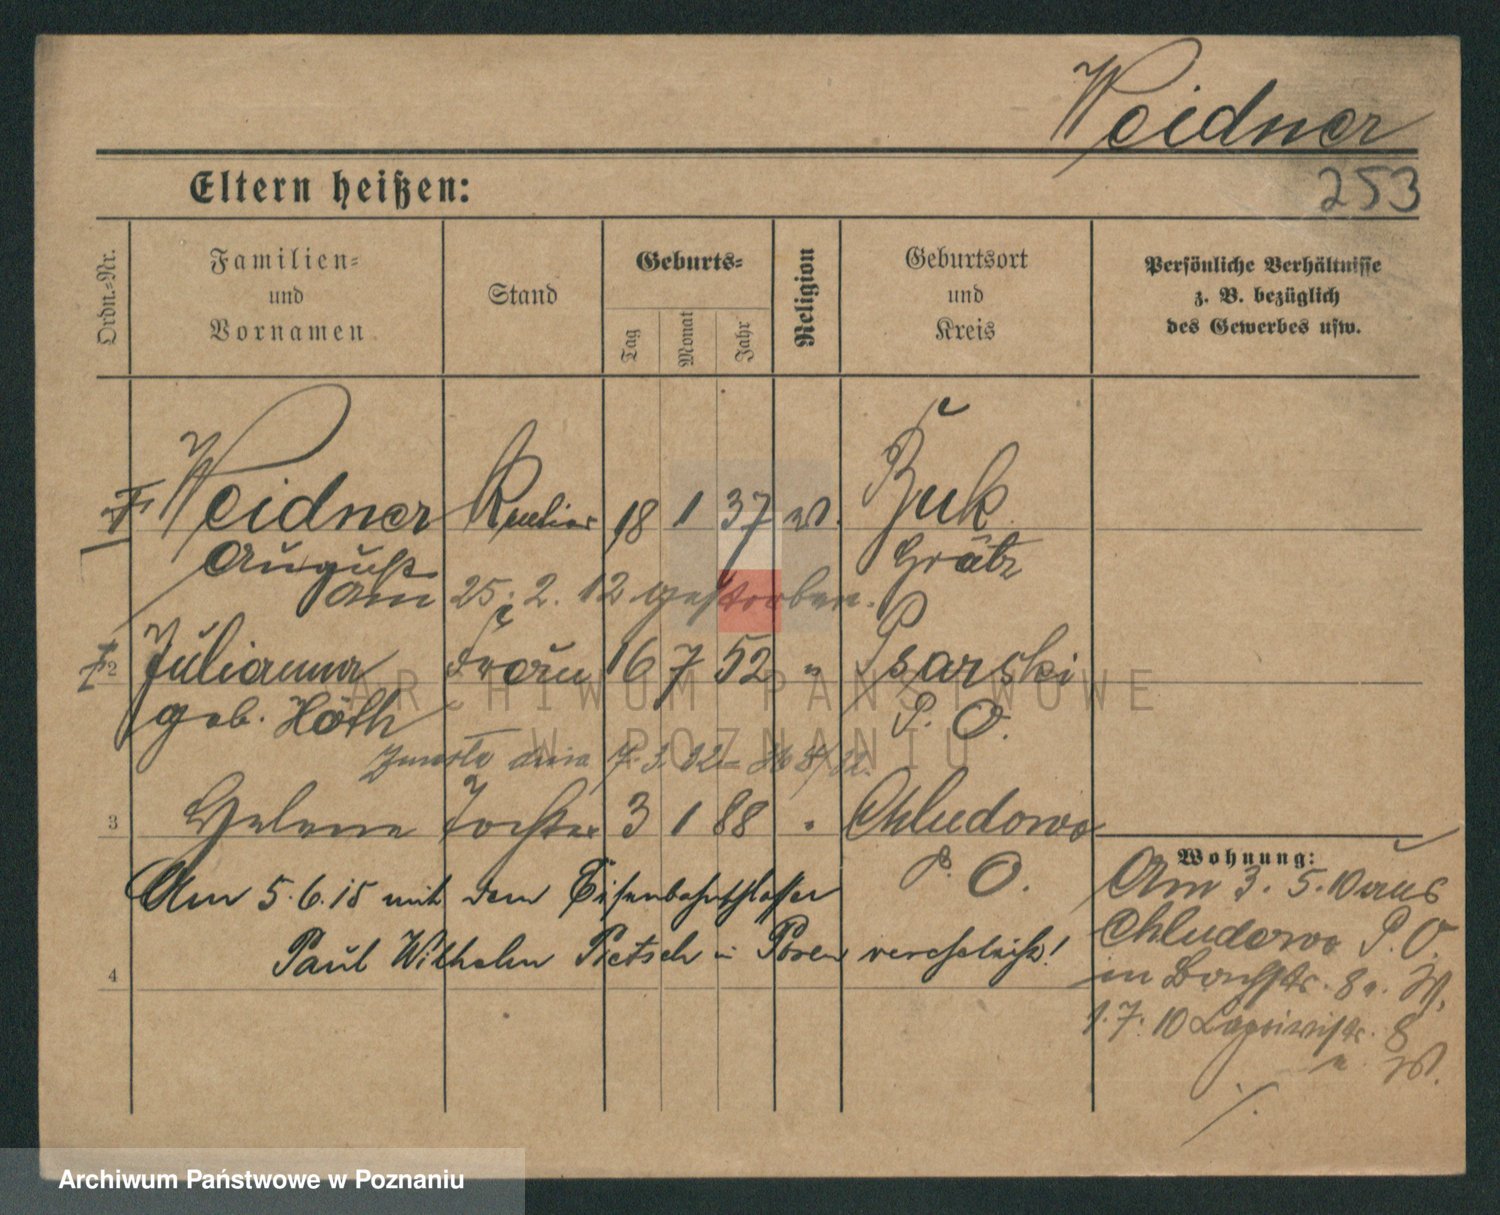 Weidner
253
Eltern heißen:
Ordn.-Nr.
Familien-
und
Vornamen
Stand
Geburts-
Tag
Monat
Jahr
Religion
Geburtsort
und
Kreis
Persönliche Verhältnisse
z. B. bezüglich
des Gewerbes usw.
Weidner 18 1 37 Buk
August Grätz
am 25. 2. 12 gestorben.
2 Julianna Frau 16 7 52 " Psarski
geb. Höth P. O.
Zmarła dnia
3 Helene Tochter 3 1 88 " Chludowo
P. O.
Am 5.6.15 mit dem Eisenbahnschlosser
Paul Wilhelm Pietsch in Posen verehelicht!
4
Wohnung:
Am 3. 5. 10 aus
Chludowo P. O.
in Bachstr. 8 a. W.
1. 7. 10 8
a. W.
ARCHIWUM PAŃSTWOWE
W POZNANIU
Archiwum Państwowe w Poznaniu